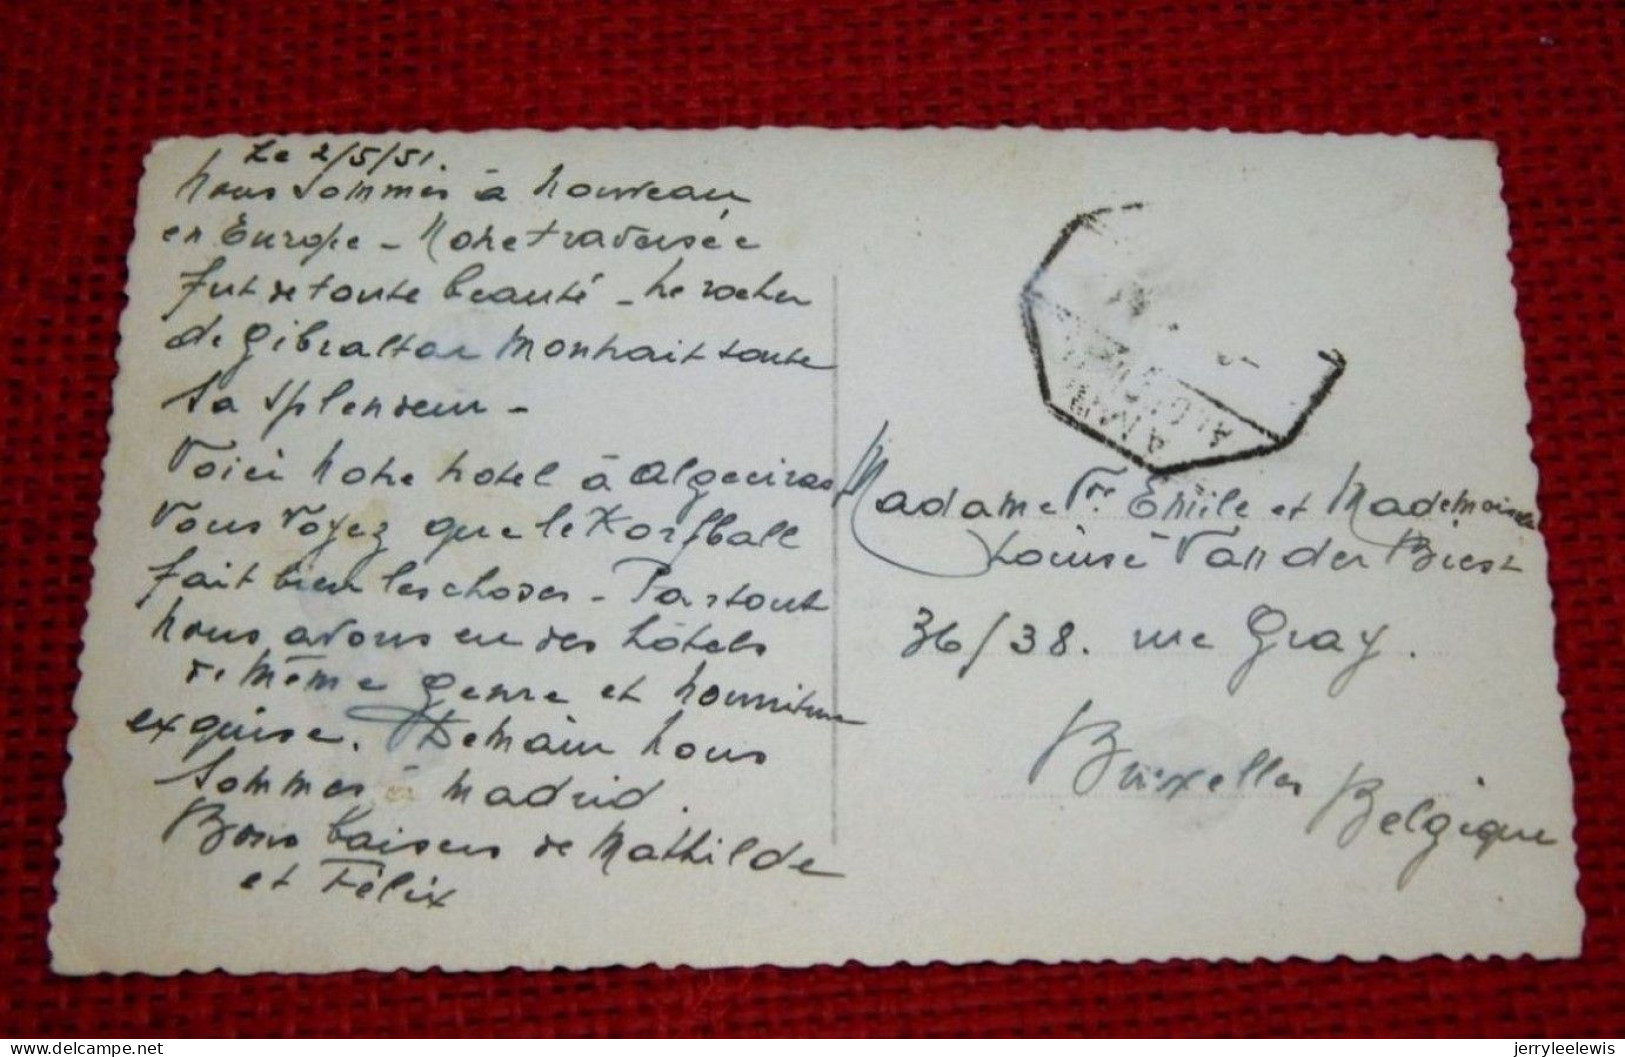 Le 2/5/51.
Nous sommes à nouveau
en Europe - Notre traversée
fut de toute beauté - Le rocher
de Gibraltar montrait toute
sa splendeur -
Voici notre hotel à Algeciras
Vous voyez que le Korfball
fait bien les choses - Partout
nous avons eu des hôtels
de même genre et nourriture
exquise. Demain nous
sommes à Madrid.
Bons baisers de Mathilde
et Félix
Madame Vve Emile et Mademoiselle
Louise Van der Biest
36/38. rue Gray.
Bruxelles
Belgique
delcampe.net
jerryleelewis